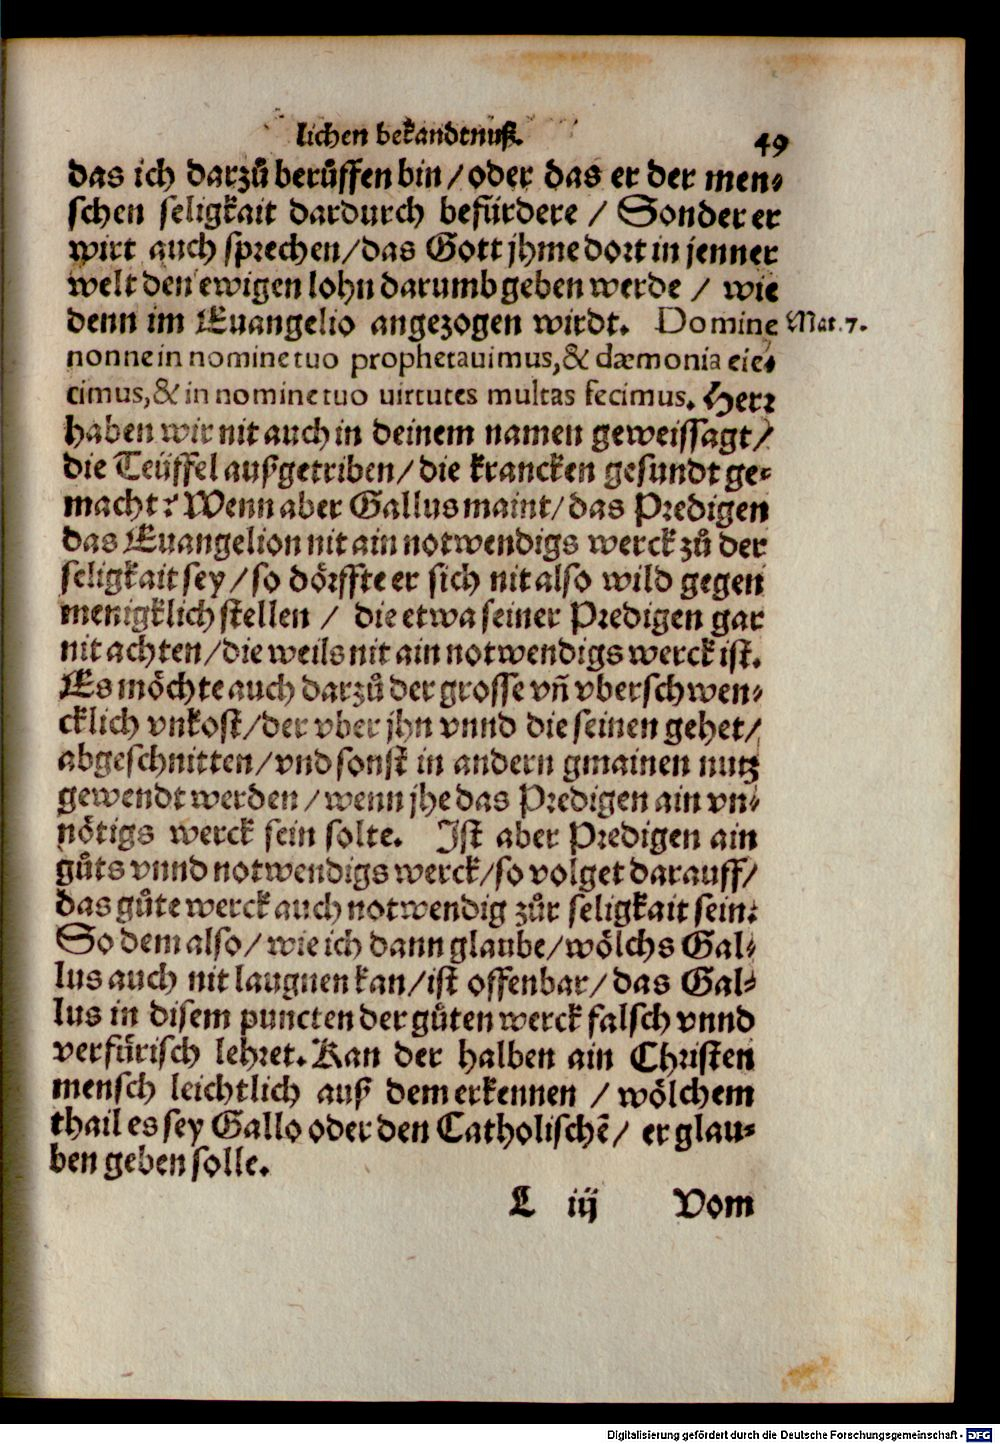 lichen bekandtnuß. 49
das ich darzů berůffen bin / oder das er der men⸗
schen seligkait dardurch befürdere / Sonder er
wirt auch sprechen / das Gott jhme dort in jenner
welt den ewigen lohn darumb geben werde / wie
denn im Euangelio angezogen wirdt. Domine Mat. 7.
nonne in nomine tuo prophetauimus, & dæmonia eie⸗
cimus, & in nomine tuo uirtutes multas fecimus. Herr
haben wir nit auch in deinem namen geweissagt /
die Teüffel außgetriben / die krancken gesundt ge⸗
macht? Wenn aber Gallus maint / das Predigen
das Euangelion nit ain notwendigs werck zů der
seligkait sey / so dörffte er sich nit also wild gegen
menigklich stellen / die etwa seiner Predigen gar
nit achten / die weils nit ain notwendigs werck ist.
Es möchte auch darzů der grosse vñ vberschwen⸗
cklich vnkost / der vber jhn vnnd die seinen gehet /
abgeschnitten / vnd sonst in andern gmainen nutz
gewendt werden / wenn jhe das Predigen ain vn⸗
nötigs werck sein solte. Ist aber Predigen ain
gůts vnnd notwendigs werck / so volget darauff /
das gůte werck auch notwendig zůr seligkait sein:
So dem also / wie ich dann glaube / wölchs Gal⸗
lus auch nit laugnen kan / ist offenbar / das Gal⸗
lus in disem puncten der gůten werck falsch vnnd
verfürisch lehret. Kan der halben ain Christen
mensch leichtlich auß dem erkennen / wölchem
thail es sey Gallo oder den Catholischẽ / er glau⸗
ben geben solle.
L iij Vom
Digitalisierung gefördert durch die Deutsche Forschungsgemeinschaft - DFG